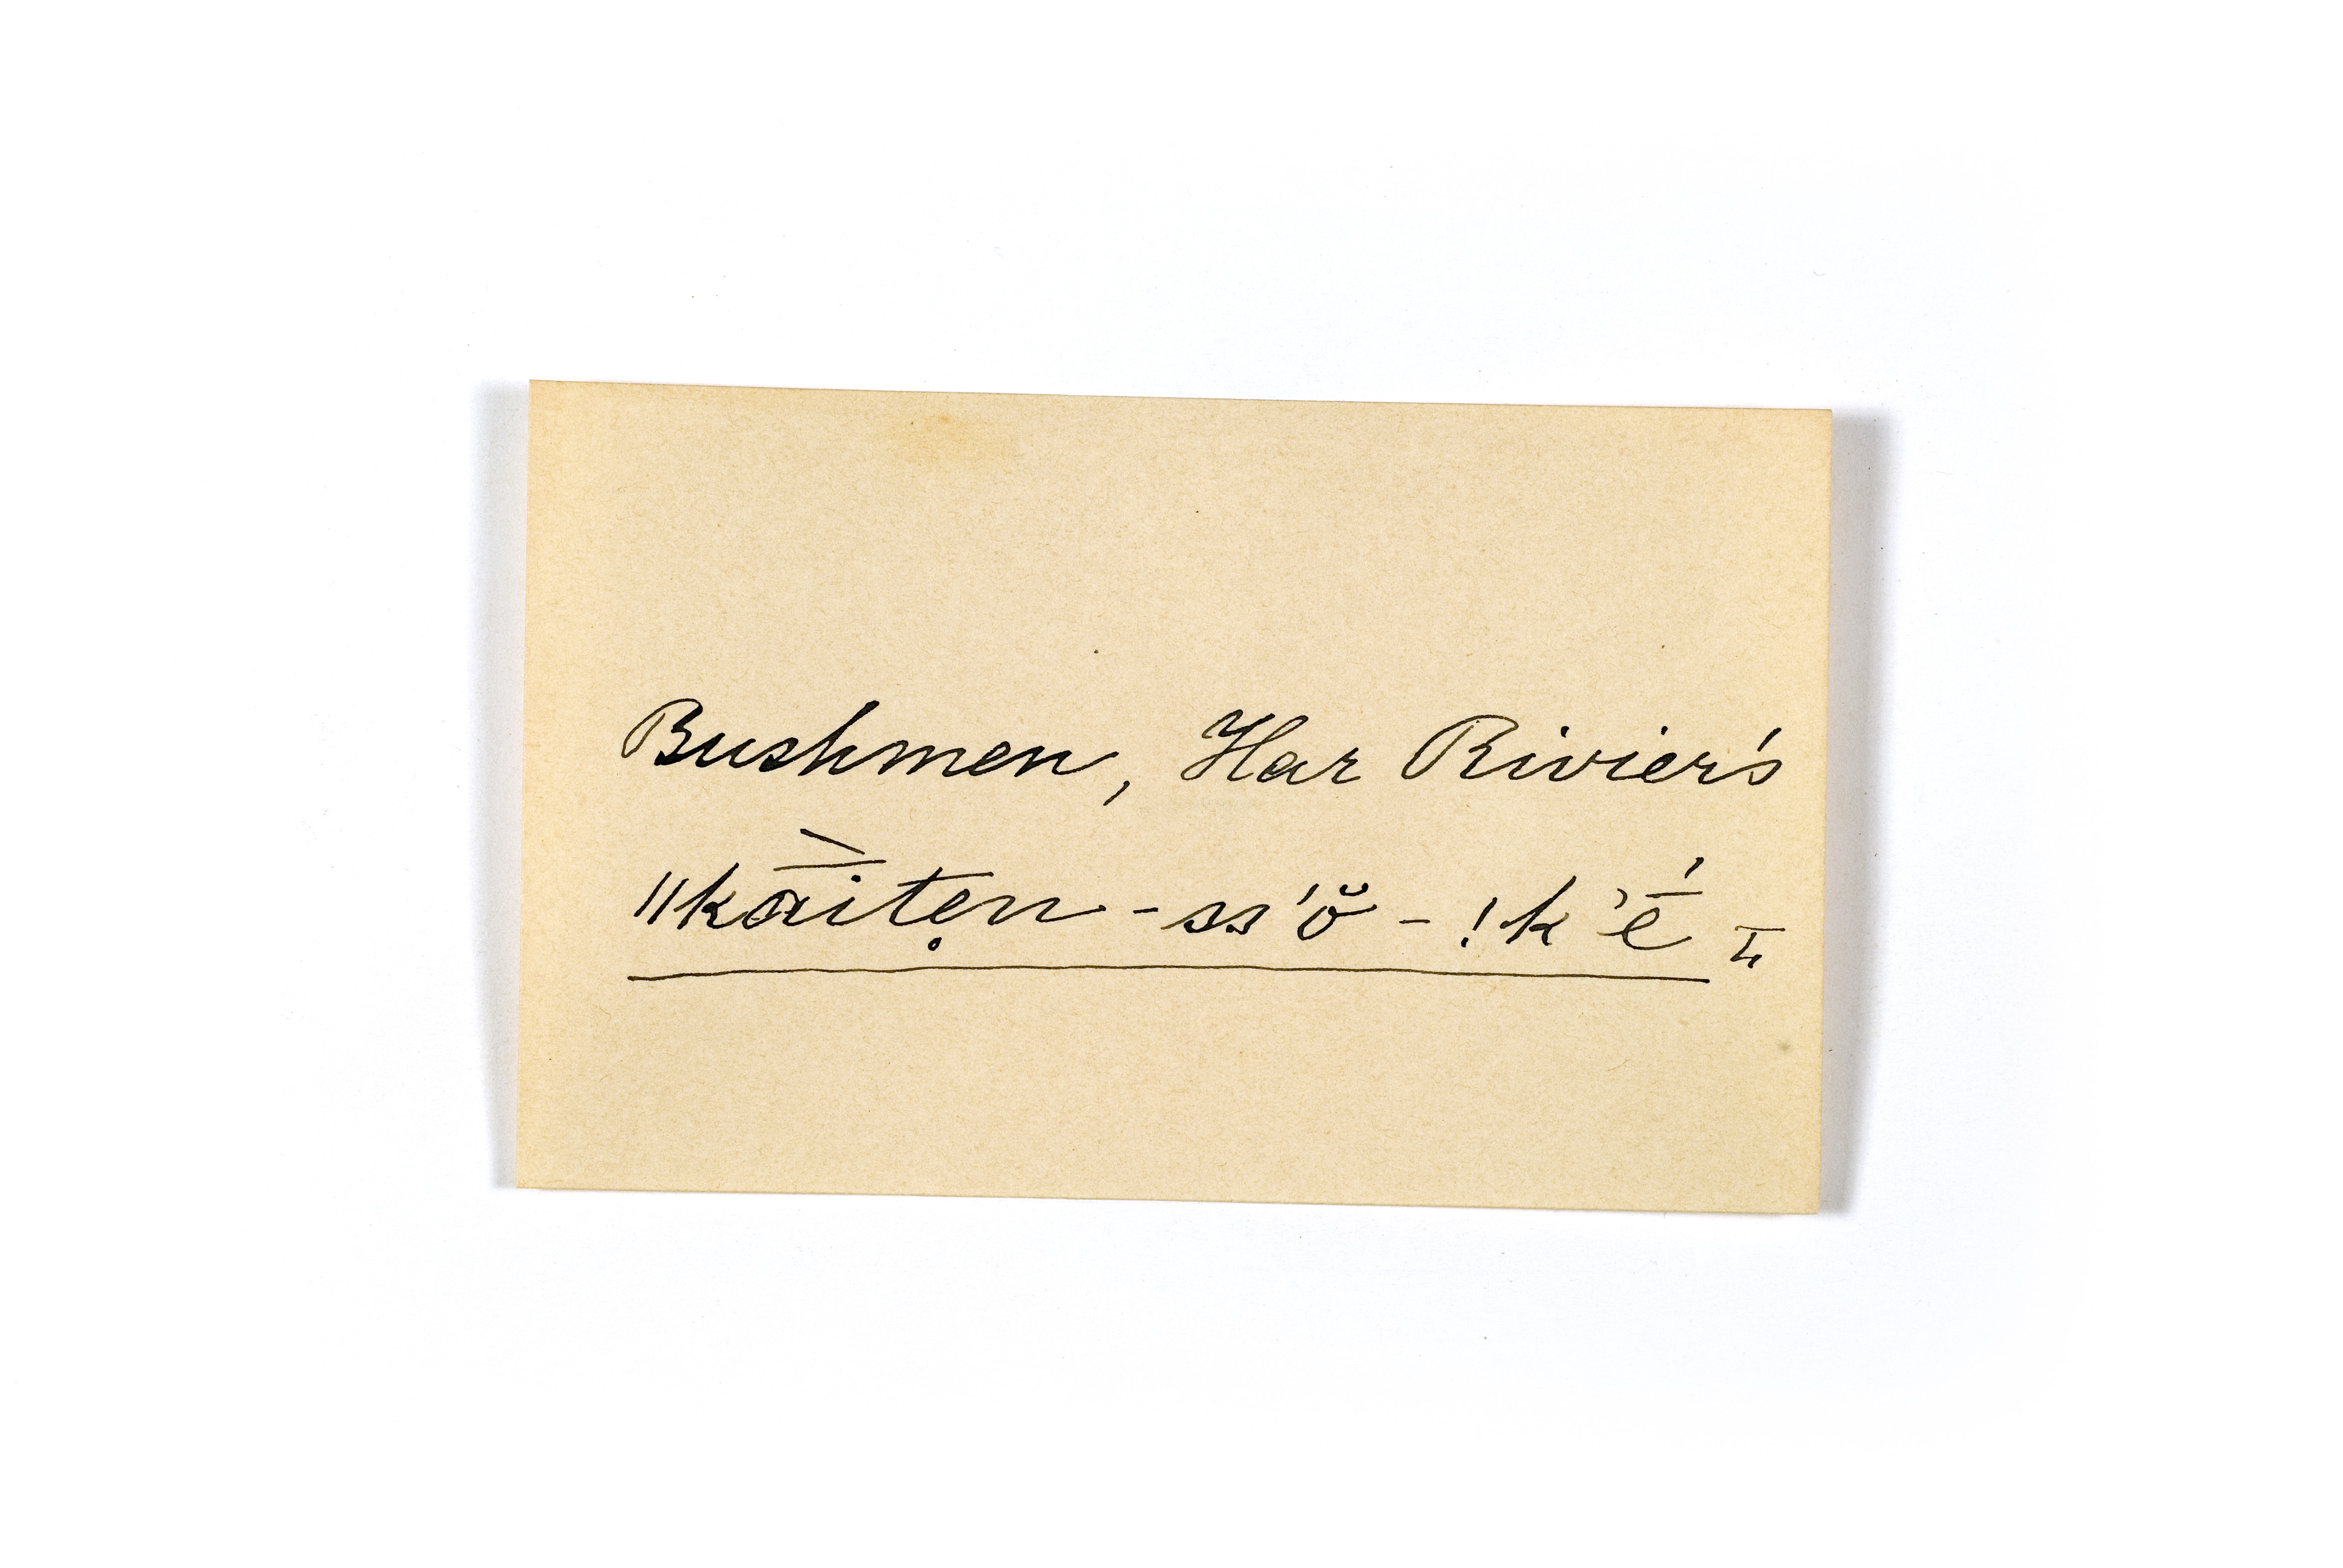 Bushmen, Har Rivier's
ǁkā̀itẹn - ss'ŏ - !k'ḗ